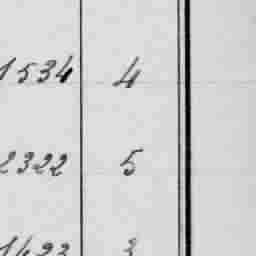 1534 4
2322 5
1423 3